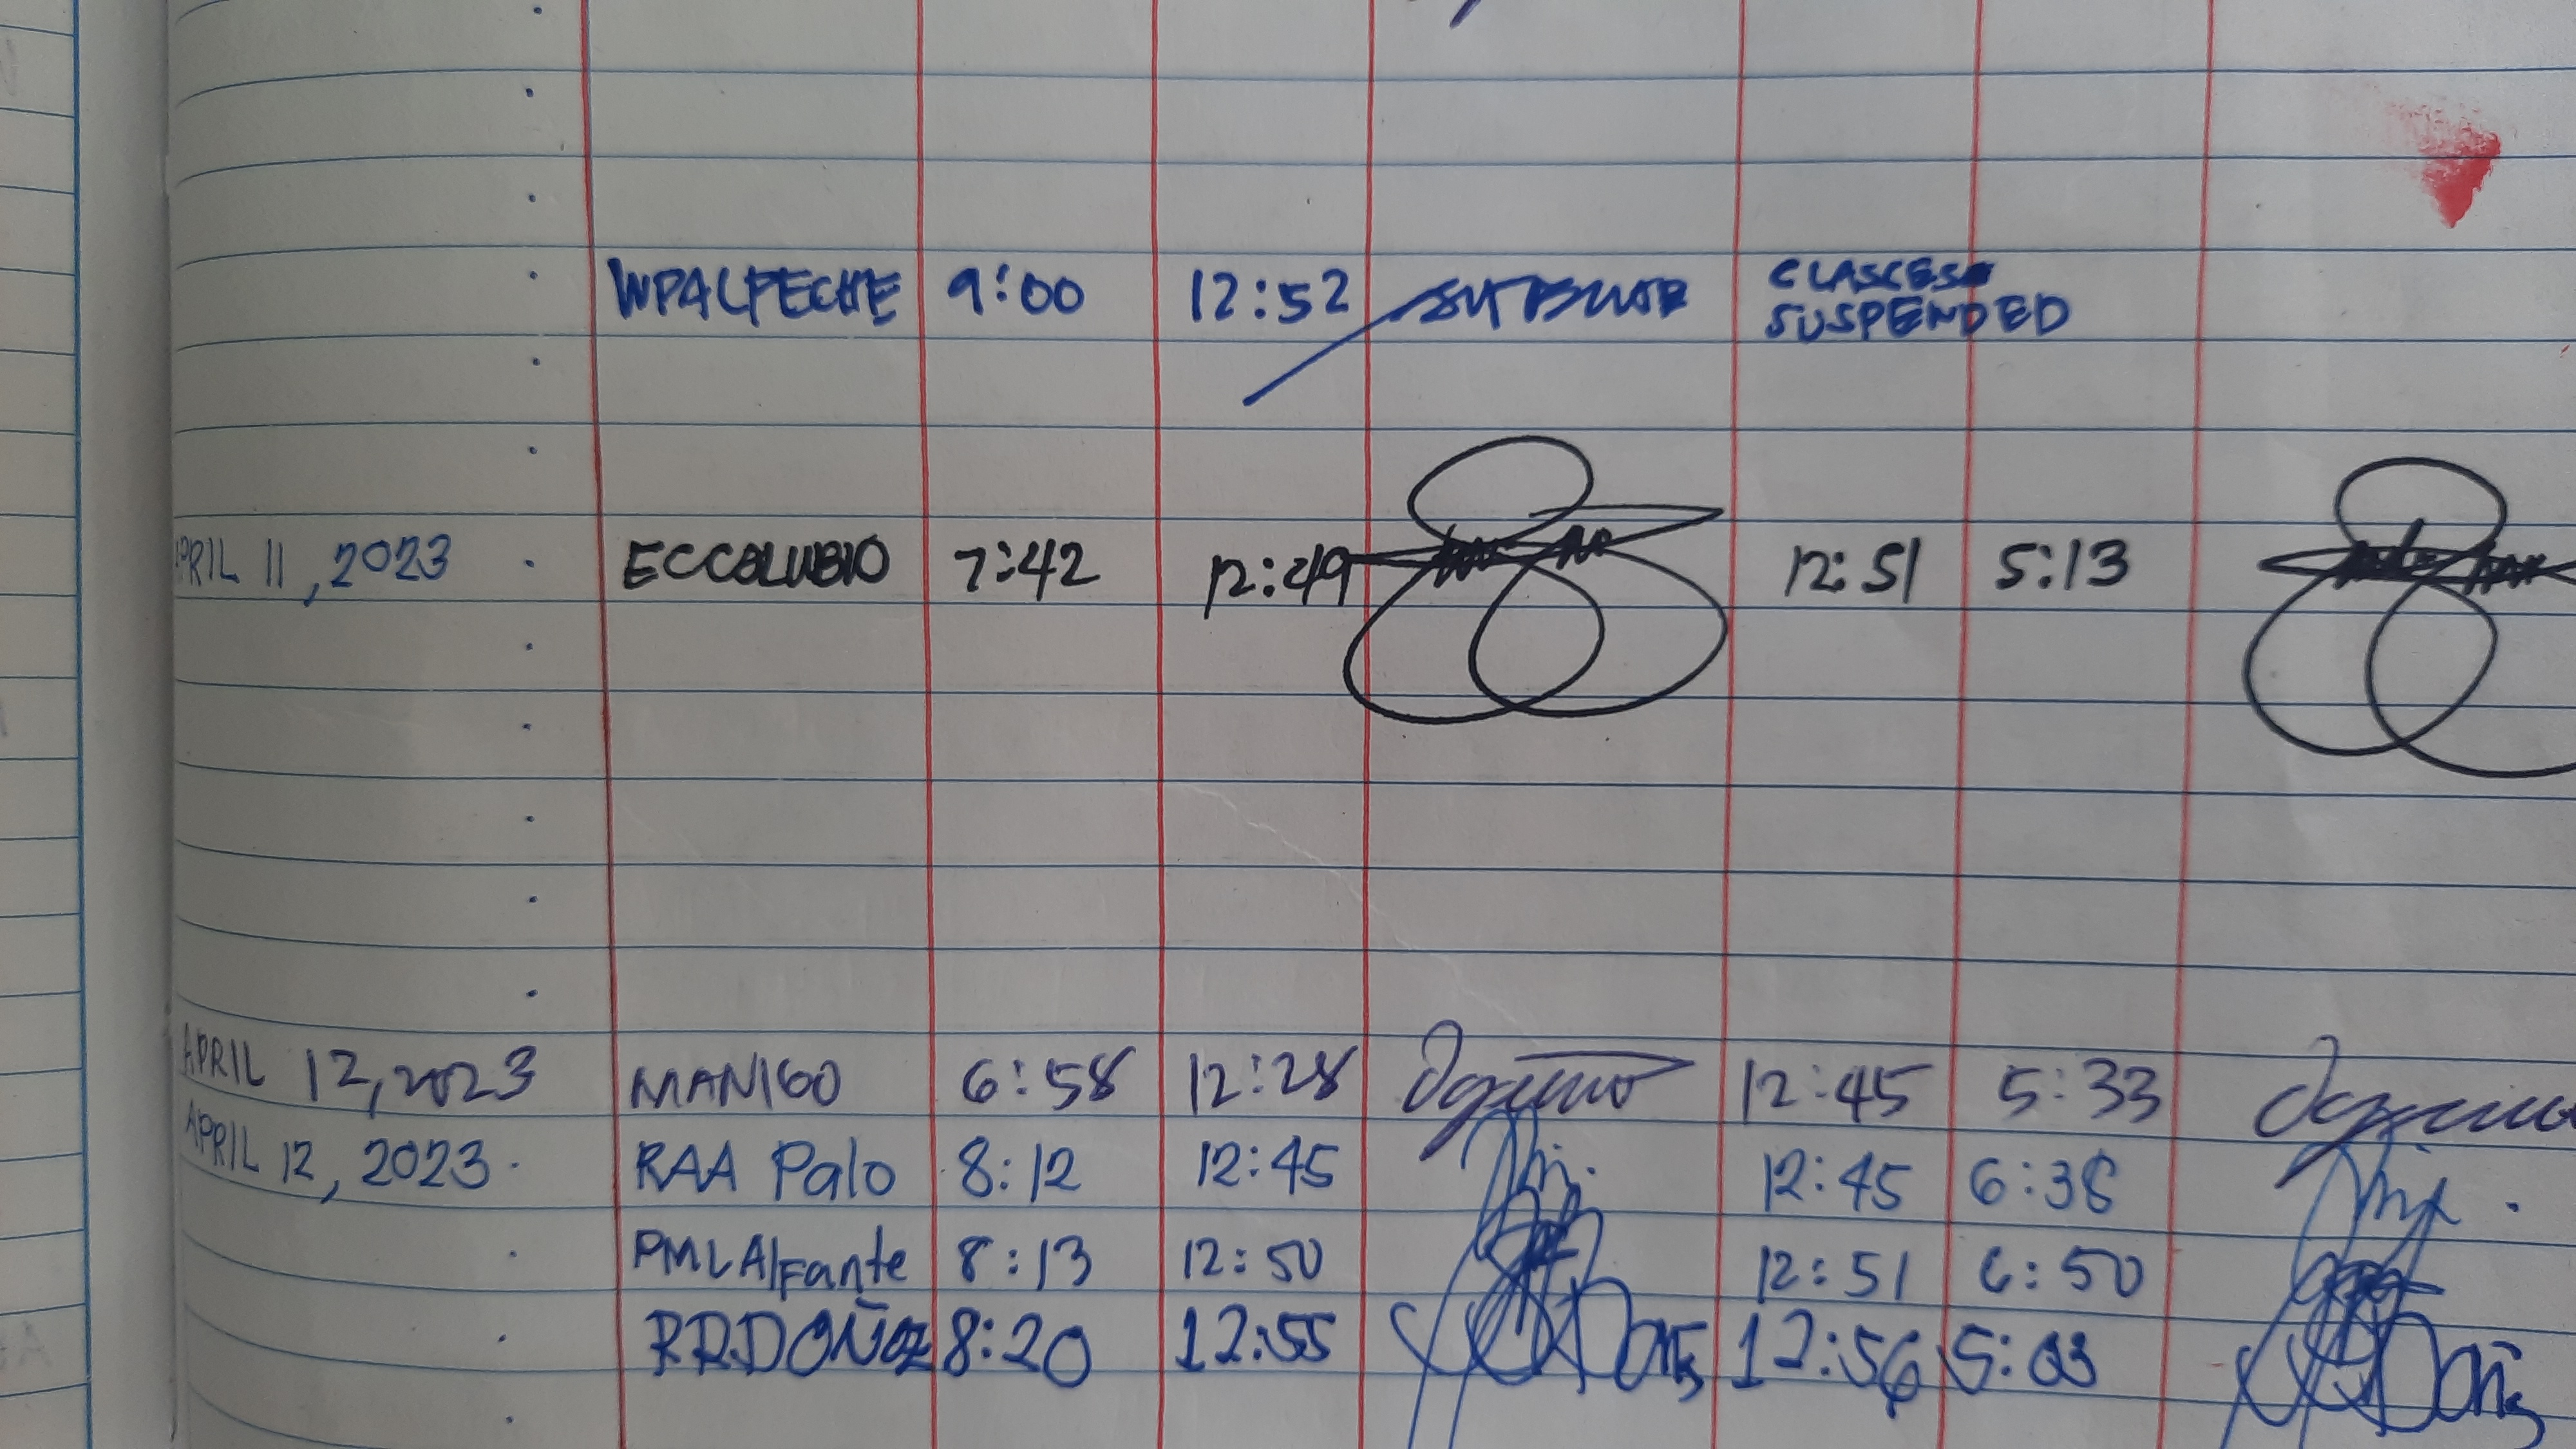 WPALPECHE 9:00 12:52 CLASCES
SUSPENDED
APRIL 11, 2023 ECCOLUBIO 7:42 12:49 12:51 5:13
APRIL 12, 2023 MANIGO 6:58 12:28 12:45 5:33
APRIL 12, 2023 RAA Palo 8:12 12:45 12:45 6:38
PMLAlfante 8:13 12:50 12:51 6:50
RRDOÑOZ 8:20 12:55 12:56 5:03